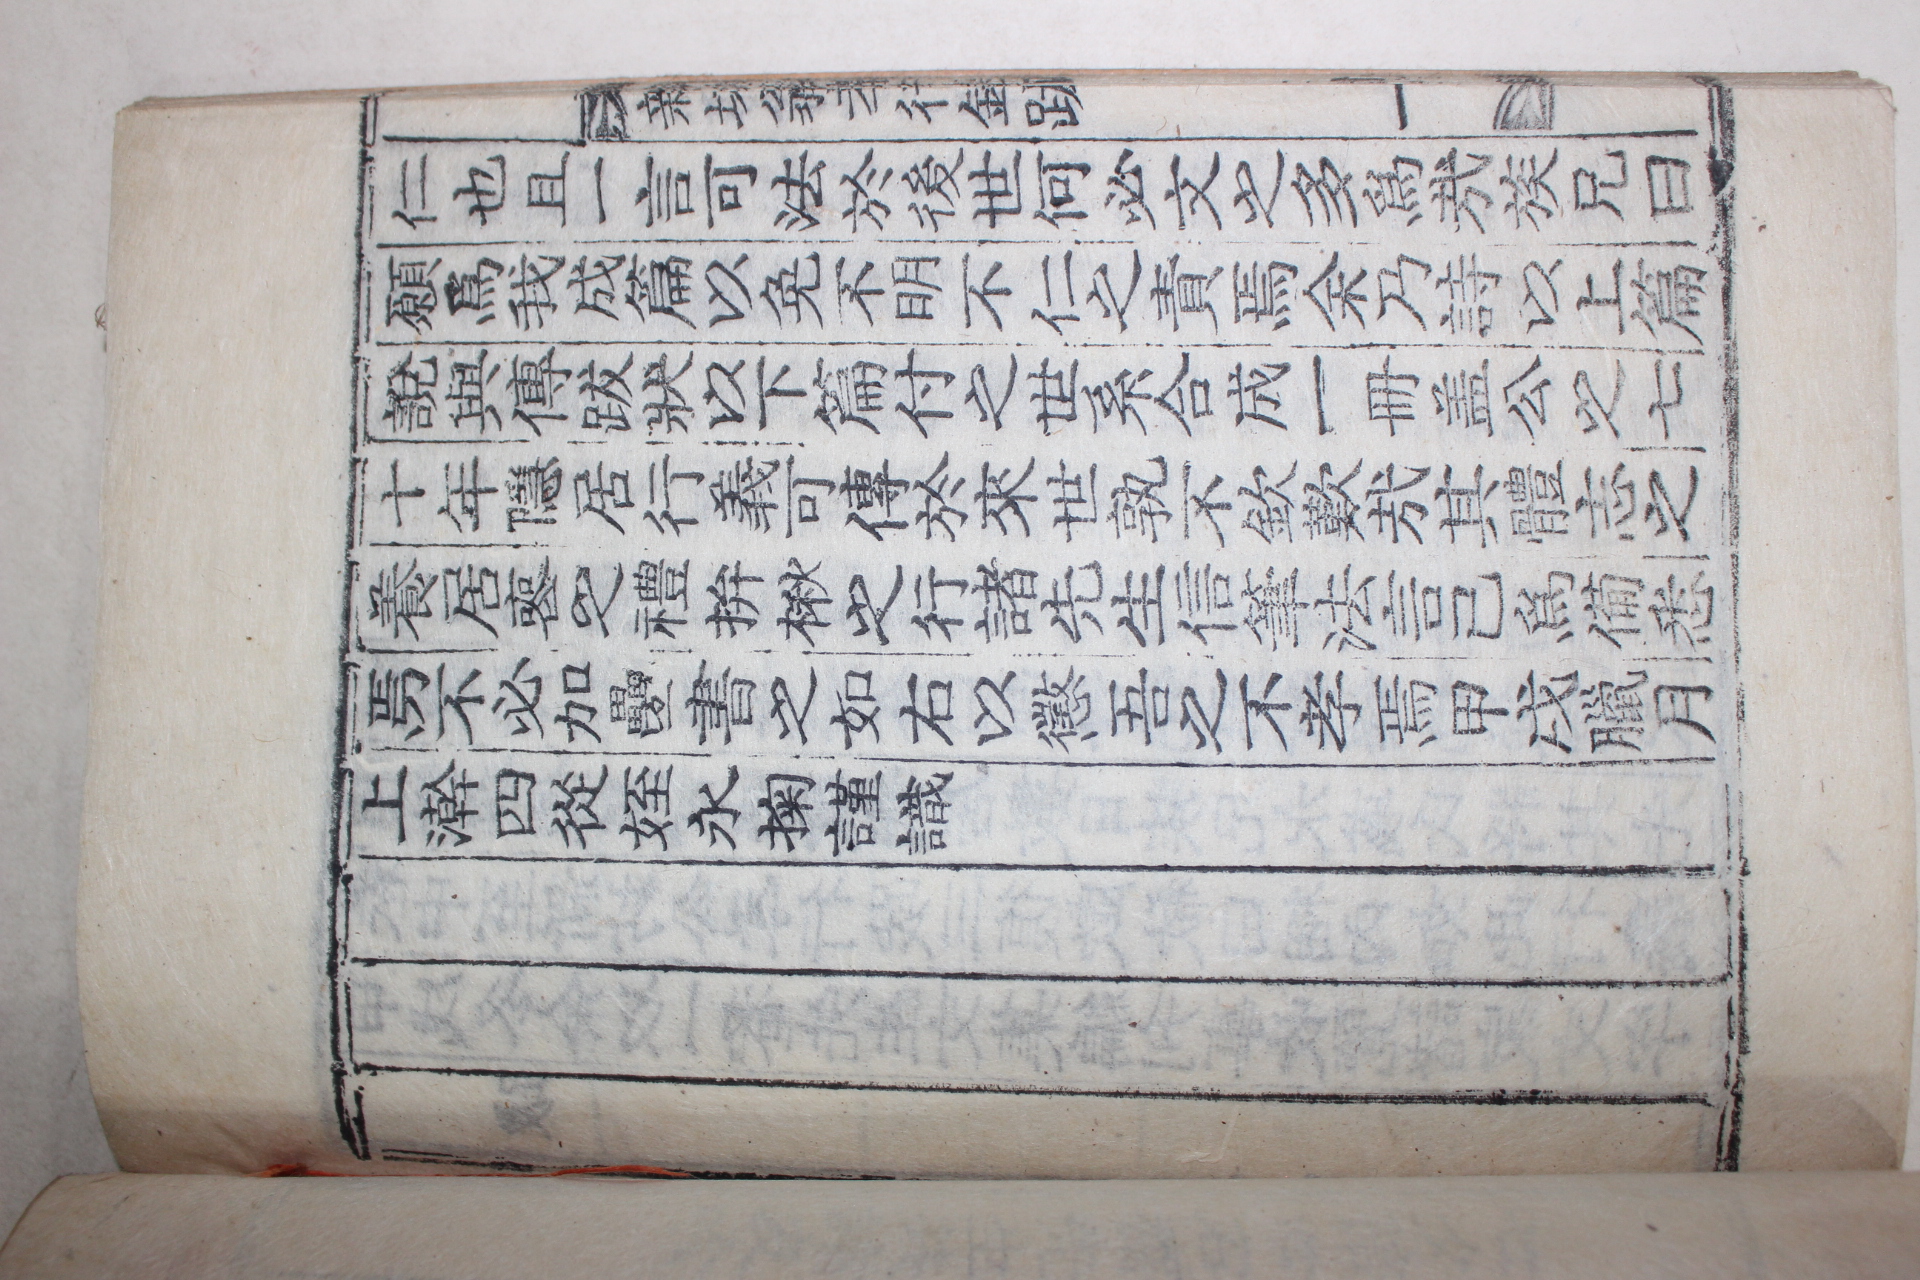 仁也且一言可法於後世何必文之多爲哉族兄曰
願爲我成篇以免不明不仁之責焉余乃詩以上篇
說與傳跋狀以下篇付之世系合成一冊盖公之七
十年隱居行義可傳於來世孰不欽歎哉其體志之
養居喪之禮拚楸之行諸先生信筆法言已爲備悉
焉不必加疊書之如右以懲吾之不孝焉甲戌臘月
上澣四從姪永掬謹識